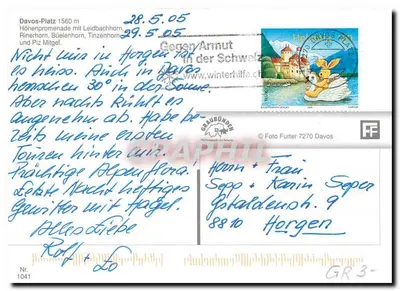 Davos-Platz 1560 m
Höhenpromenade mit Leidbachhorn,
Rinerhorn, Büelenhorn, Tinzenhorn
und Piz Mitgel.
28.5.05
29.5.05
Nicht nur in Horgen ist
es heiss. Auch in Davos
herrschen 30° in der Sonne.
Aber nachts kühlt es
angenehm ab. Habe be-
reits meine ersten
Touren hinter mir.
Prächtige Alpenflora.
Letzte Nacht heftiges
Gewitter mit Hagel.
Alles Liebe
Rolf + Lo
Nr.
1041
Gegen Armut
in der Schweiz
www.winterhilfe.ch
GRAUBÜNDEN
© Foto Furter 7270 Davos
FF
Herrn + Frau
Sepp + Karin
8810 Horgen
GR 3.-